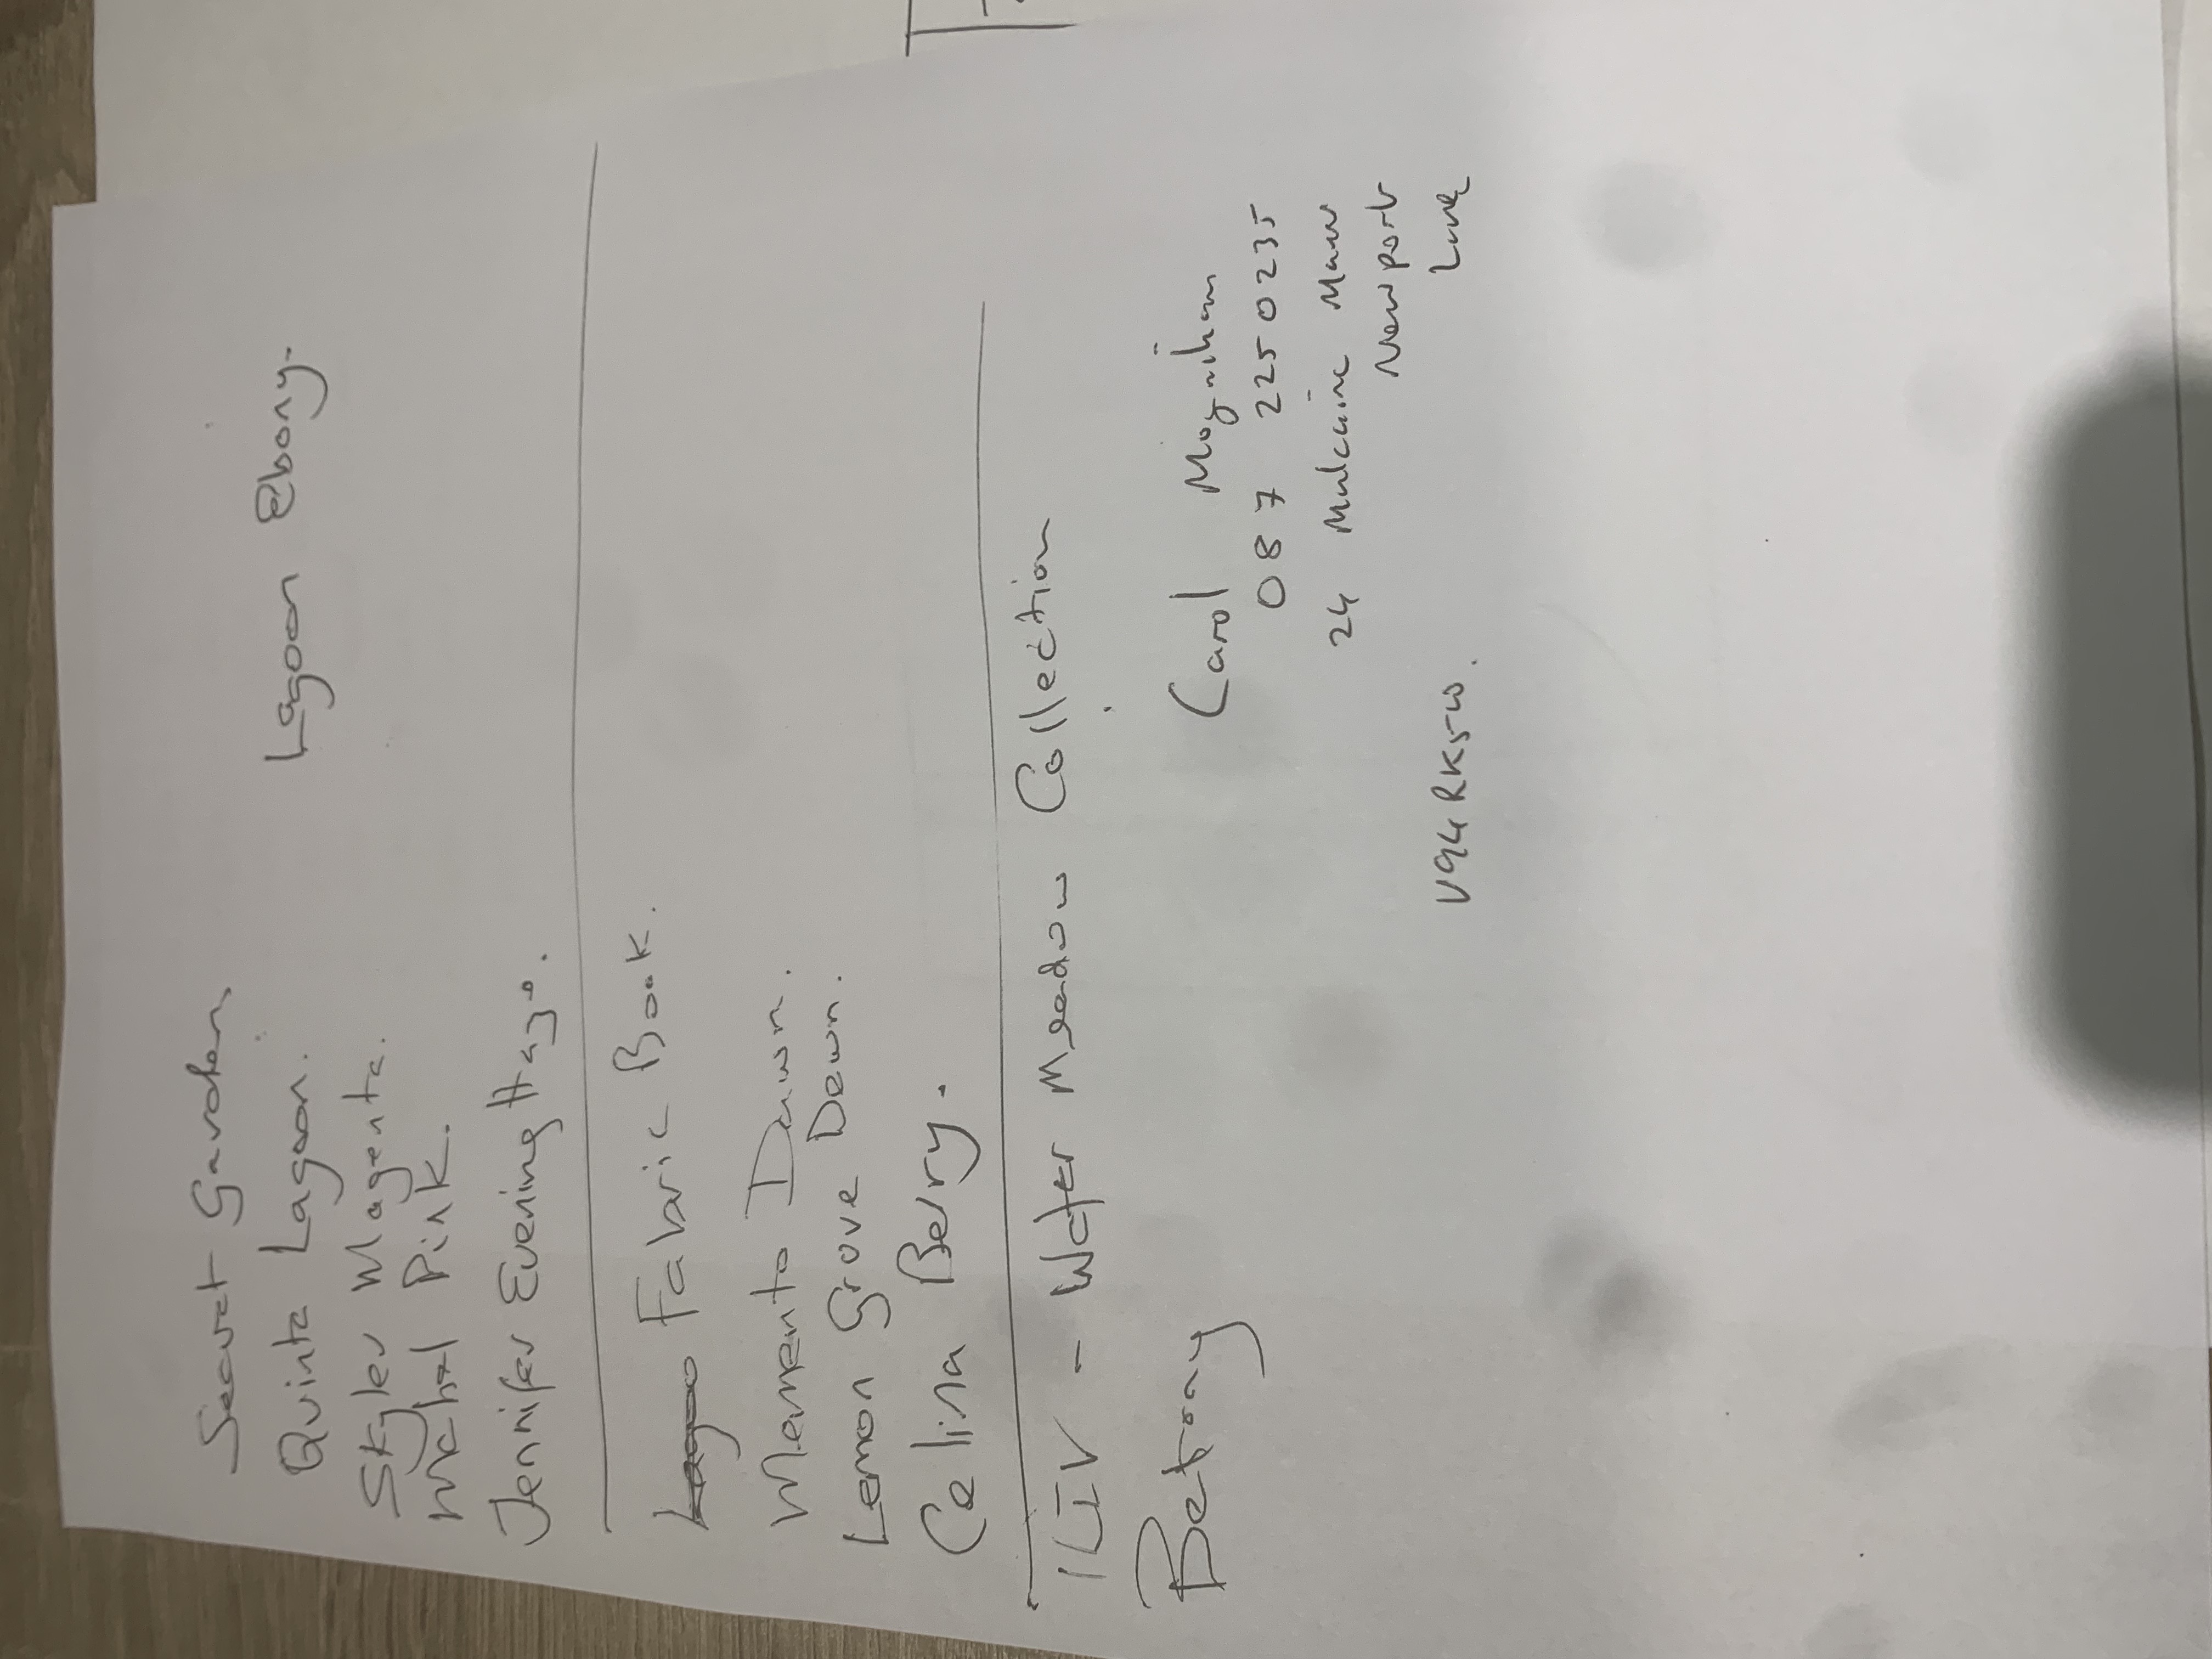 Secret Garden
Quinta Lagoon.
Lagoon Ebony.
Skyler Magenta.
Pink.
Jennifer Evening Haze.
Fabric Book.
Memento Dawn.
Lemon Grove Dawn.
Celina Berry.
ILIV - Water Meadow Collection
Botany
Carol Moynihan
087 2250235
24 Mulcaire Manor
Newport
V94RK5W.